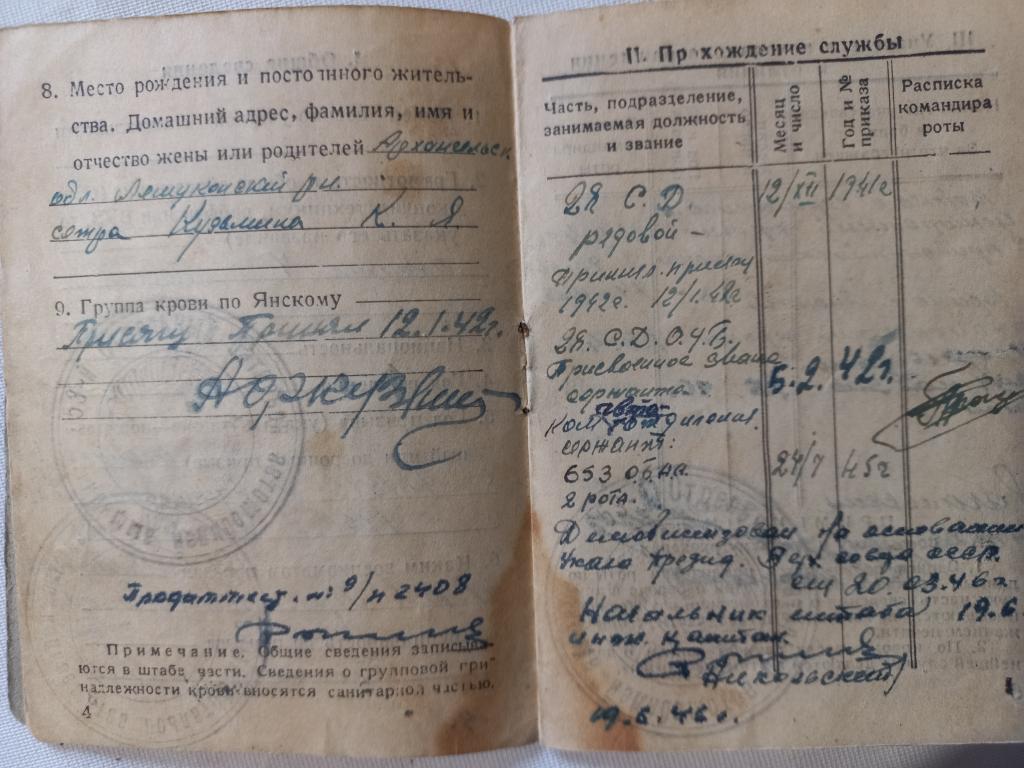 8. Место рождения и постоянного житель-
ства. Домашний адрес, фамилия, имя и
отчество жены или родителей
обл. Лешуконский рн.
сетра К. Я.
9. Группа крови по Янскому
Присягу Принял 12.1.42г.
Продаттест. №: 9/н 2408
Примечание. Общие сведения записы-
ются в штабе части. Сведения о групповой при
надлежности крови вносятся санитарной частью.
4
II. Прохождение службы
Часть, подразделение, занимаемая должность и звание
Месяц и число
Год и № приказа
Расписка командира роты
28 С. Д. 12/XII 1941г
рядовой —
Принил. присягу
1942г. 12/1.42г
28. С.Д. О.У.Б.
Присвоиное звание
сержанта. 5.2. 42г.
Ком авто
сержант:
653 24/7 45г
2 рота.
Демобилизован на основании
Указа Презид. Вех совда СССР.
от 20.03.46г
Начальник штаба 19.6
инж. Капитан
Никольский
19.6.46г.